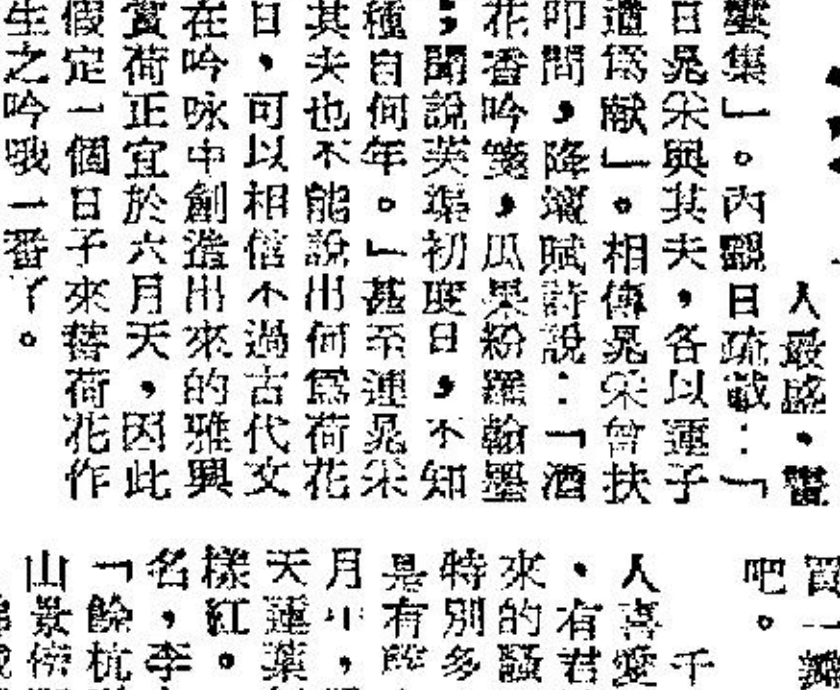 人最盛，
集」。內觀日疏載：「
日晁采與其夫，各以蓮子
遺為獻」。相傳晁采曾扶
叩問，降壇賦詩說：「酒
花香吟箋，瓜果粉羅翰墨
；聞說英瑞初度日，不知
種自何年。」甚至連晁采
其夫也不能說出何為荷花
日，可以相信不過古代文
在吟咏中創造出來的雅興
賞荷正宜於六月天，因此
假定一個日子來替荷花作
生之吟哦一番了。
買一
吧。
千
人喜愛
、有君
來的騷
特別多
是有
月中，
天蓮葉
樣紅。
名，李
「餘杭
山景傍